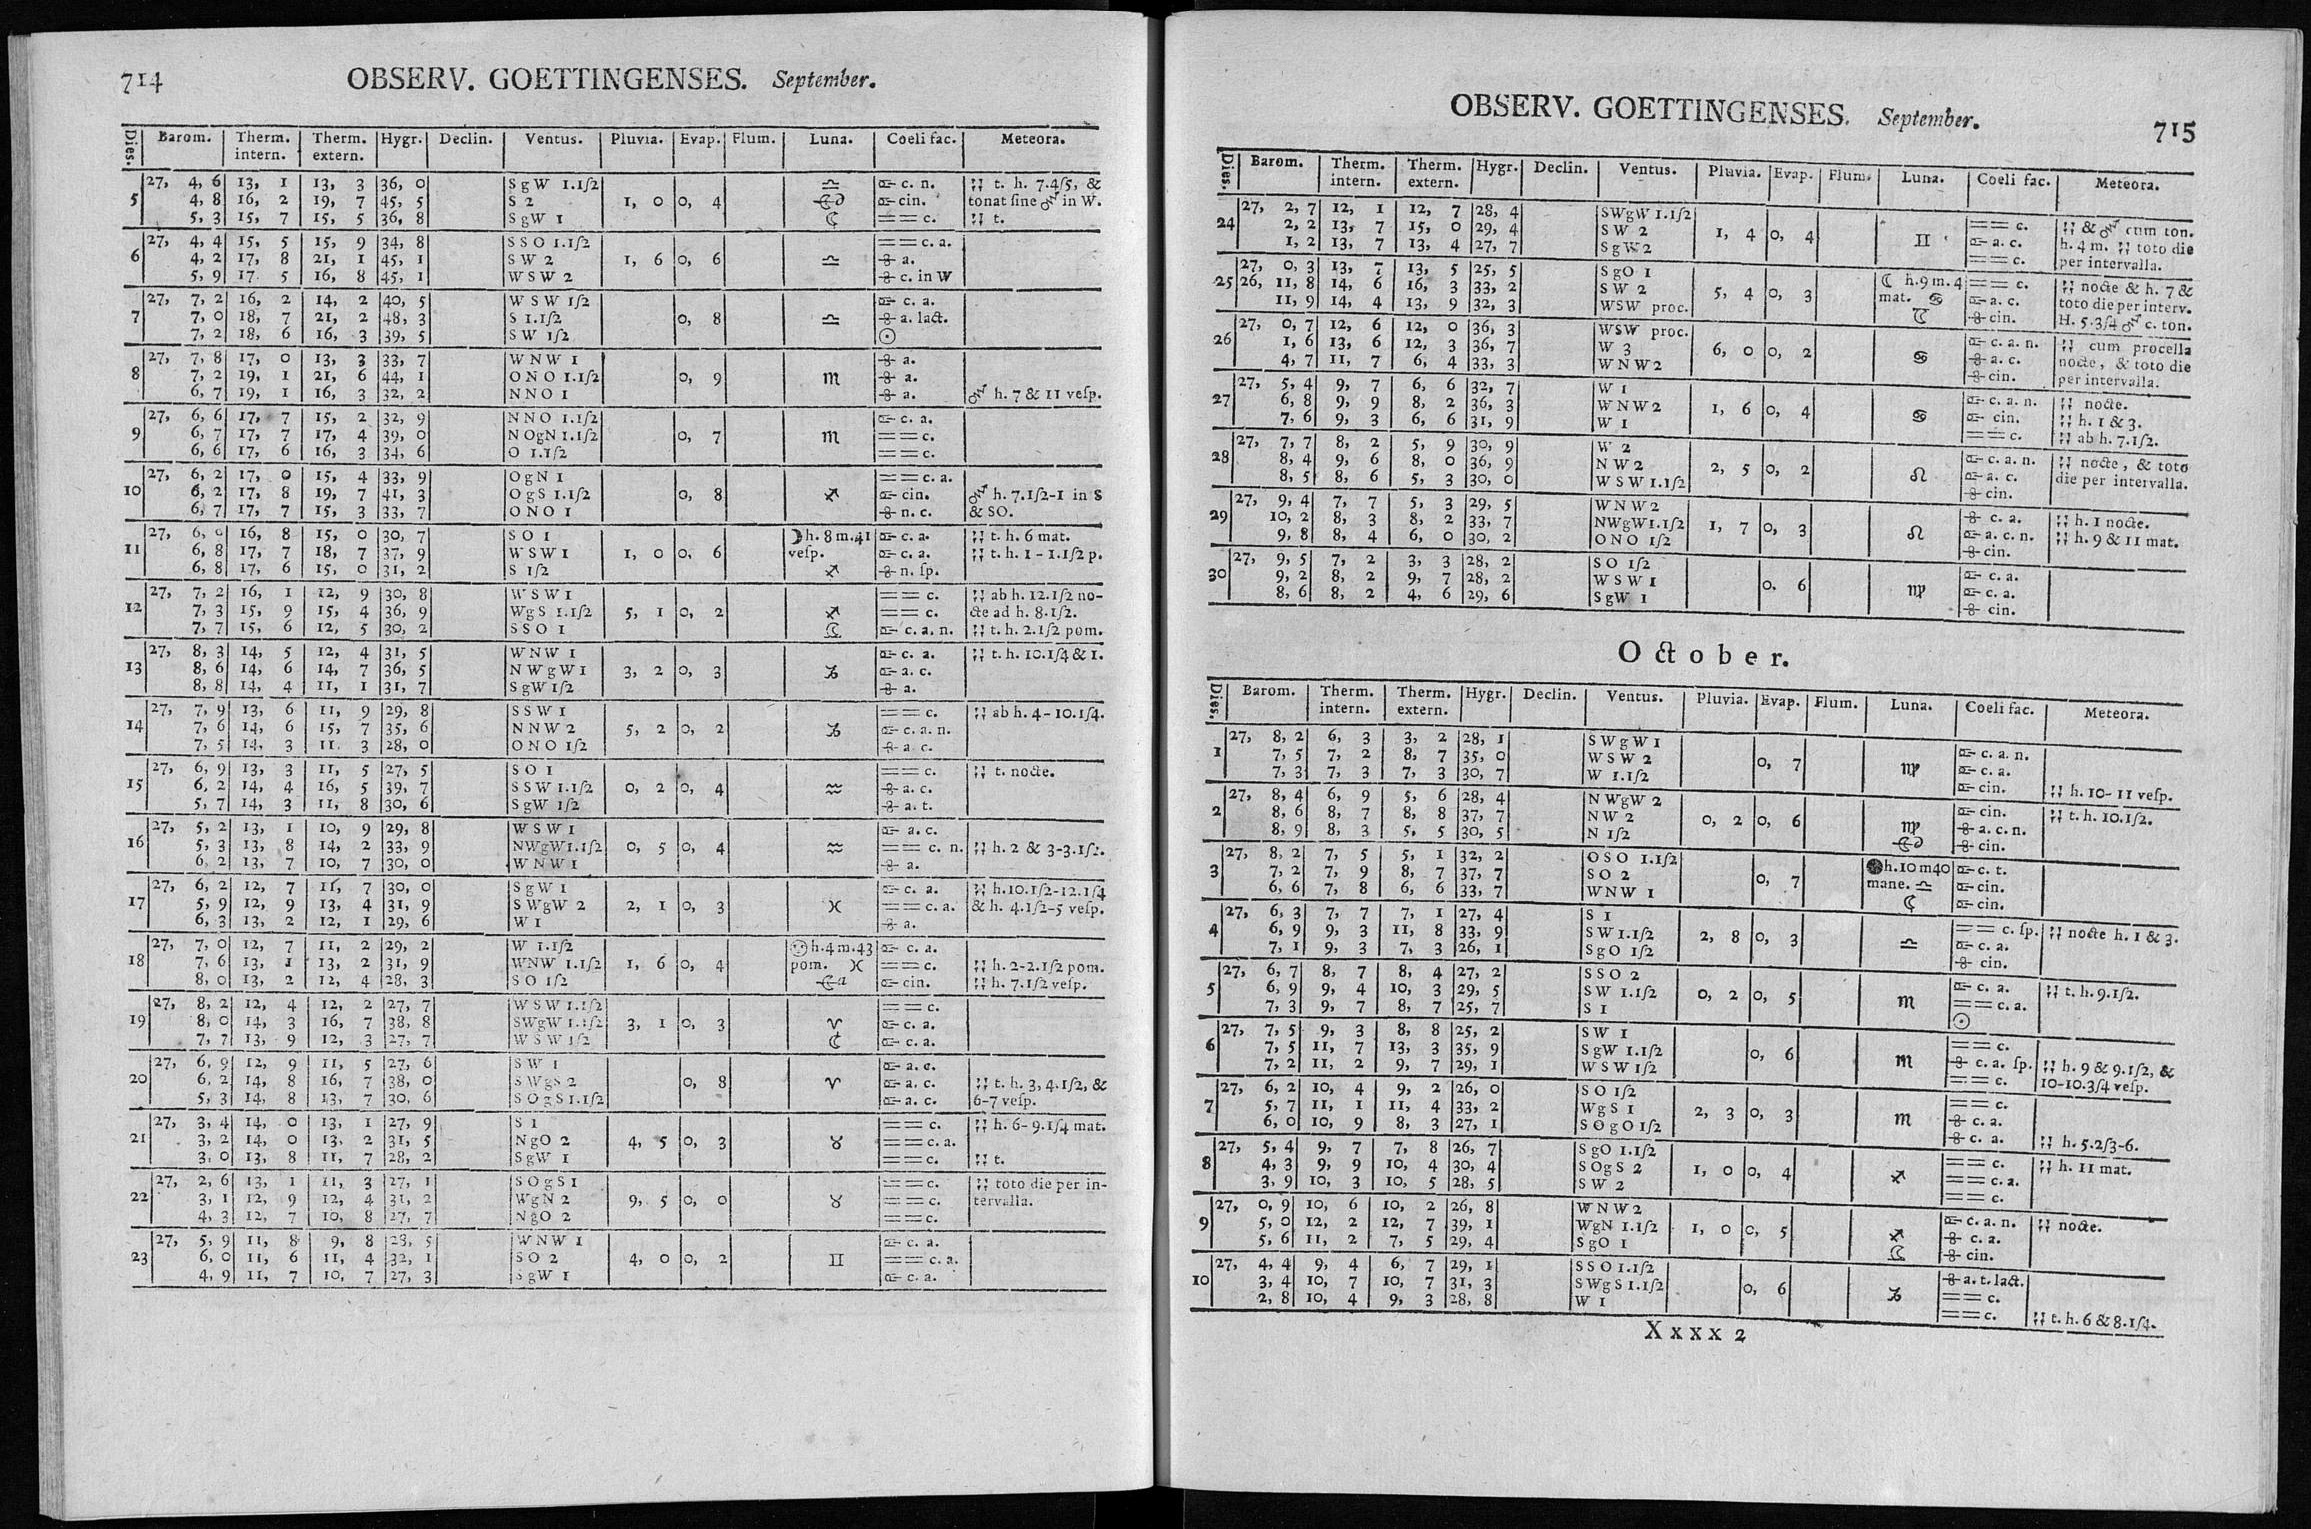 714 OBSERV. GOETTINGENSES. September.
Dies. Barom. Therm. intern. Therm. extern. Hygr. Declin. Ventus. Pluvia. Evap. Flum. Luna. Coeli fac. Meteora.
27, 4, 6 13, 1 13, 3 36, 0 SgW 1.1ſ2 ♎ c. n. t. h. 7.4ſ5, &
5 4, 8 16, 2 19, 7 45, 5 S 2 1, 0 0, 4 cin. tonat ſine in W.
5, 3 15, 7 15, 5 36, 8 SgW 1 ☾ == c. t.
27, 4, 4 15, 5 15, 9 34, 8 SSO 1.1ſ2 == c. a.
6 4, 2 17, 8 21, 1 45, 1 SW 2 1, 6 0, 6 ♎ a.
5, 9 17 5 16, 8 45, 1 WSW 2 c. in W
27, 7, 2 16, 2 14, 2 40, 5 WSW 1ſ2 c. a.
7 7, 0 18, 7 21, 2 48, 3 S 1.1ſ2 0, 8 ♎ a. lact.
7, 2 18, 6 16, 3 39, 5 SW 1ſ2 ☉
27, 7, 8 17, 0 13, 3 33, 7 WNW 1 a.
8 7, 2 19, 1 21, 6 44, 1 ONO 1.1ſ2 0, 9 ♏ a.
6, 7 19, 1 16, 3 32, 2 NNO 1 a. h. 7 & 11 veſp.
27, 6, 6 17, 7 15, 2 32, 9 NNO 1.1ſ2 c. a.
9 6, 7 17, 7 17, 4 39, 0 NOgN 1.1ſ2 0, 7 ♏ == c.
6, 6 17, 6 16, 3 34, 6 O 1.1ſ2 == c.
27, 6, 2 17, 0 15, 4 33, 9 OgN 1 == c. a.
10 6, 2 17, 8 19, 7 41, 3 OgS 1.1ſ2 0, 8 ♐ cin. h. 7.1ſ2-1 in S
6, 7 17, 7 15, 3 33, 7 ONO 1 n. c. & SO.
27, 6, 16, 8 15, 0 30, 7 SO 1 ☽ h. 8 m. 41 c. a. t. h. 6 mat.
11 6, 8 17, 7 18, 7 37, 9 WSW 1 1, 0 0, 6 veſp. c. a. t. h. 1 - 1.1ſ2 p.
6, 8 17, 6 15, 0 31, 2 S 1ſ2 ♐ n. ſp.
27, 7, 2 16, 1 12, 9 30, 8 WSW 1 == c. ab h. 12.1ſ2 no-
12 7, 3 15, 9 15, 4 36, 9 WgS 1.1ſ2 5, 1 0, 2 ♐ == c. cte ad h. 8.1ſ2.
7, 7 15, 6 12, 5 30, 2 SSO 1 c. a. n. t. h. 2.1ſ2 pom.
27, 8, 3 14, 5 12, 4 31, 5 WNW 1 c. a. t. h. 10.1ſ4 & 1.
13 8, 6 14, 6 14, 7 36, 5 NWgW 1 3, 2 0, 3 ♑ a. c.
8, 8 14, 4 11, 1 31, 7 SgW 1ſ2 a.
27, 7, 9 13, 6 11, 9 29, 8 SSW 1 == c. ab h. 4 - 10.1ſ4.
14 7, 6 14, 6 15, 7 35, 6 NNW 2 5, 2 0, 2 ♑ c. a. n.
7, 5 14, 3 11, 3 28, 0 ONO 1ſ2 a. c.
27, 6, 9 13, 3 11, 5 27, 5 SO 1 == c. t. nocte.
15 6, 2 14, 4 16, 5 39, 7 SSW 1.1ſ2 0, 2 0, 4 ♒ a. c.
5, 7 14, 3 11, 8 30, 6 SgW 1ſ2 a. t.
27, 5, 2 13, 1 10, 9 29, 8 WSW 1 a. c.
16 5, 3 13, 8 14, 2 33, 9 NWgW 1.1ſ2 0, 5 0, 4 ♒ == c. n. h. 2 & 3-3.1ſ2.
6, 2 13, 7 10, 7 30, 0 WNW 1 a.
27, 6, 2 12, 7 11, 7 30, 0 SgW 1 c. a. h. 10.1ſ2-12.1ſ4
17 5, 9 12, 9 13, 4 31, 9 SWgW 2 2, 1 0, 3 ♓ == c. a. & h. 4.1ſ2-5 veſp.
6, 3 13, 2 12, 1 29, 6 W 1 a.
27, 7, 0 12, 7 11, 2 29, 2 W 1.1ſ2 h. 4 m. 43 c. a.
18 7, 6 13, 1 13, 2 31, 9 WNW 1.1ſ2 1, 6 0, 4 pom. ♓ == c. h. 2-2.1ſ2 pom.
8, 0 13, 2 12, 4 28, 3 SO 1ſ2 cin. h. 7.1ſ2 veſp.
27, 8, 2 12, 4 12, 2 27, 7 WSW 1.1ſ2 == c.
19 8, 0 14, 3 16, 7 38, 8 SWgW 1.1ſ2 3, 1 0, 3 ♈ c. a.
7, 7 13, 9 12, 3 27, 7 WSW 1ſ2 c. a.
27, 6, 9 12, 9 11, 5 27, 6 SW 1 a. c.
20 6, 2 14, 8 16, 7 38, 0 SWgS 2 0, 8 ♈ a. c. t. h. 3, 4.1ſ2, &
5, 3 14, 8 13, 7 30, 6 SOgS 1.1ſ2 a. c. 6-7 veſp.
27, 3, 4 14, 0 13, 1 27, 9 S 1 == c. h. 6-9.1ſ4 mat.
21 3, 2 14, 0 13, 2 31, 5 NgO 2 4, 5 0, 3 ♉ == c. a.
3, 0 13, 8 11, 7 28, 2 SgW 1 == c. t.
27, 2, 6 13, 1 11, 3 27, 1 SOgS 1 == c. toto die per in-
22 3, 1 12, 9 12, 4 31, 2 WgN 2 9, 5 0, 0 ♉ == c. tervalla.
4, 3 12, 7 10, 8 27, 7 NgO 2 == c.
27, 5, 9 11, 8 9, 8 28, 5 WNW 1 c. a.
23 6, 0 11, 6 11, 4 32, 1 SO 2 4, 0 0, 2 ♊ == c. a.
4, 9 11, 7 10, 7 27, 3 SgW 1 c. a.
OBSERV. GOETTINGENSES. September. 715
Dies. Barom. Therm. intern. Therm. extern. Hygr. Declin. Ventus. Pluvia. Evap. Flum. Luna. Coeli fac. Meteora.
27, 2, 7 12, 1 12, 7 28, 4 SWgW 1.1ſ2 == c. & cum ton.
24 2, 2 13, 7 15, 0 29, 4 SW 2 1, 4 0, 4 ♊ a. c. h. 4 m. toto die
1, 2 13, 7 13, 4 27, 7 SgW 2 == c. per intervalla.
27, 0, 3 13, 7 13, 5 25, 5 SgO 1 ☾ h. 9 m. 4 == c. nocte & h. 7 &
25 26, 11, 8 14, 6 16, 3 33, 2 SW 2 5, 4 0, 3 mat. ♋ a. c. toto die per interv.
11, 9 14, 4 13, 9 32, 3 WSW proc. cin. H. 5.3ſ4 c. ton.
27, 0, 7 12, 6 12, 0 36, 3 WSW proc. c. a. n. cum procella
26 1, 6 13, 6 12, 3 36, 7 W 3 6, 0 0, 2 ♋ a. c. nocte, & toto die
4, 7 11, 7 6, 4 33, 3 WNW 2 cin. per intervalla.
27, 5, 4 9, 7 6, 6 32, 7 W 1 c. a. n. nocte.
27 6, 8 9, 9 8, 2 36, 3 WNW 2 1, 6 0, 4 ♋ cin. h. 1 & 3.
7, 6 9, 3 6, 6 31, 9 W 1 == c. ab h. 7.1ſ2.
27, 7, 7 8, 2 5, 9 30, 9 W 2 c. a. n. nocte, & toto
28 8, 4 9, 6 8, 0 36, 9 NW 2 2, 5 0, 2 ♌ a. c. die per intervalla.
8, 5 8, 6 5, 3 30, 0 WSW 1.1ſ2 cin.
27, 9, 4 7, 7 5, 3 29, 5 WNW 2 c. a. h. 1 nocte.
29 10, 2 8, 3 8, 2 33, 7 NWgW 1.1ſ2 1, 7 0, 3 ♌ a. c. n. h. 9 & 11 mat.
9, 8 8, 4 6, 0 30, 2 ONO 1ſ2 cin.
27, 9, 5 7, 2 3, 3 28, 2 SO 1ſ2 c. a.
30 9, 2 8, 2 9, 7 28, 2 WSW 1 0. 6 ♍ c. a.
8, 6 8, 2 4, 6 29, 6 SgW 1 cin.
October.
Dies. Barom. Therm. intern. Therm. extern. Hygr. Declin. Ventus. Pluvia. Evap. Flum. Luna. Coeli fac. Meteora.
27, 8, 2 6, 3 3, 2 28, 1 SWgW 1 c. a. n.
1 7, 5 7, 2 8, 7 35, 0 WSW 2 0, 7 ♍ c. a.
7, 3 7, 3 7, 3 30, 7 W 1.1ſ2 cin. h. 10-11 veſp.
27, 8, 4 6, 9 5, 6 28, 4 NWgW 2 cin. t. h. 10.1ſ2.
2 8, 6 8, 7 8, 8 37, 7 NW 2 0, 2 0, 6 ♍ a. c. n.
8, 9 8, 3 5, 5 30, 5 N 1ſ2 cin.
27, 8, 2 7, 5 5, 1 32, 2 OSO 1.1ſ2 h. 10 m 40 c. t.
3 7, 2 7, 9 8, 7 37, 7 SO 2 0, 7 mane. ♎ cin.
6, 6 7, 8 6, 6 33, 7 WNW 1 cin.
27, 6, 3 7, 7 7, 1 27, 4 S 1 == c. ſp. nocte h. 1 & 3.
4 6, 9 9, 3 11, 8 33, 9 SW 1.1ſ2 2, 8 0, 3 ♎ c. a.
7, 1 9, 3 7, 3 26, 1 SgO 1ſ2 cin.
27, 6, 7 8, 7 8, 4 27, 2 SSO 2 c. a. t. h. 9.1ſ2.
5 6, 9 9, 4 10, 3 29, 5 SW 1.1ſ2 0, 2 0, 5 ♏ == c. a.
7, 3 9, 7 8, 7 25, 7 S 1 ☉
27, 7, 5 9, 3 8, 8 25, 2 SW 1 == c.
6 7, 5 11, 7 13, 3 35, 9 SgW 1.1ſ2 0, 6 ♏ c. a. ſp. h. 9 & 9.1ſ2, &
7, 2 11, 2 9, 7 29, 1 WSW 1ſ2 == c. 10-10.3ſ4 veſp.
27, 6, 2 10, 4 9, 2 26, 0 SO 1ſ2 == c.
7 5, 7 11, 1 11, 4 33, 2 WgS 1 2, 3 0, 3 ♏ c. a.
6, 0 10, 9 8, 3 27, 1 SOgO 1ſ2 c. a. h. 5.2ſ3-6.
27, 5, 4 9, 7 7, 8 26, 7 SgO 1.1ſ2 == c. h. 11 mat.
8 4, 3 9, 9 10, 4 30, 4 SOgS 2 1, 0 0, 4 ♐ == c. a.
3, 9 10, 3 10, 5 28, 5 SW 2 == c.
27, 0, 9 10, 6 10, 2 26, 8 WNW 2 c. a. n. nocte.
9 5, 0 12, 2 12, 7 39, 1 WgN 1.1ſ2 1, 0 0, 5 ♐ c. a.
5, 6 11, 2 7, 5 29, 4 SgO 1 cin.
27, 4, 4 9, 4 6, 7 29, 1 SSO 1.1ſ2 a. t. lact.
10 3, 4 10, 7 10, 7 31, 3 SWgS 1.1ſ2 0, 6 ♑ == c.
2, 8 10, 4 9, 3 28, 8 W 1 == c. t. h. 6 & 8.1ſ4.
Xxxx 2